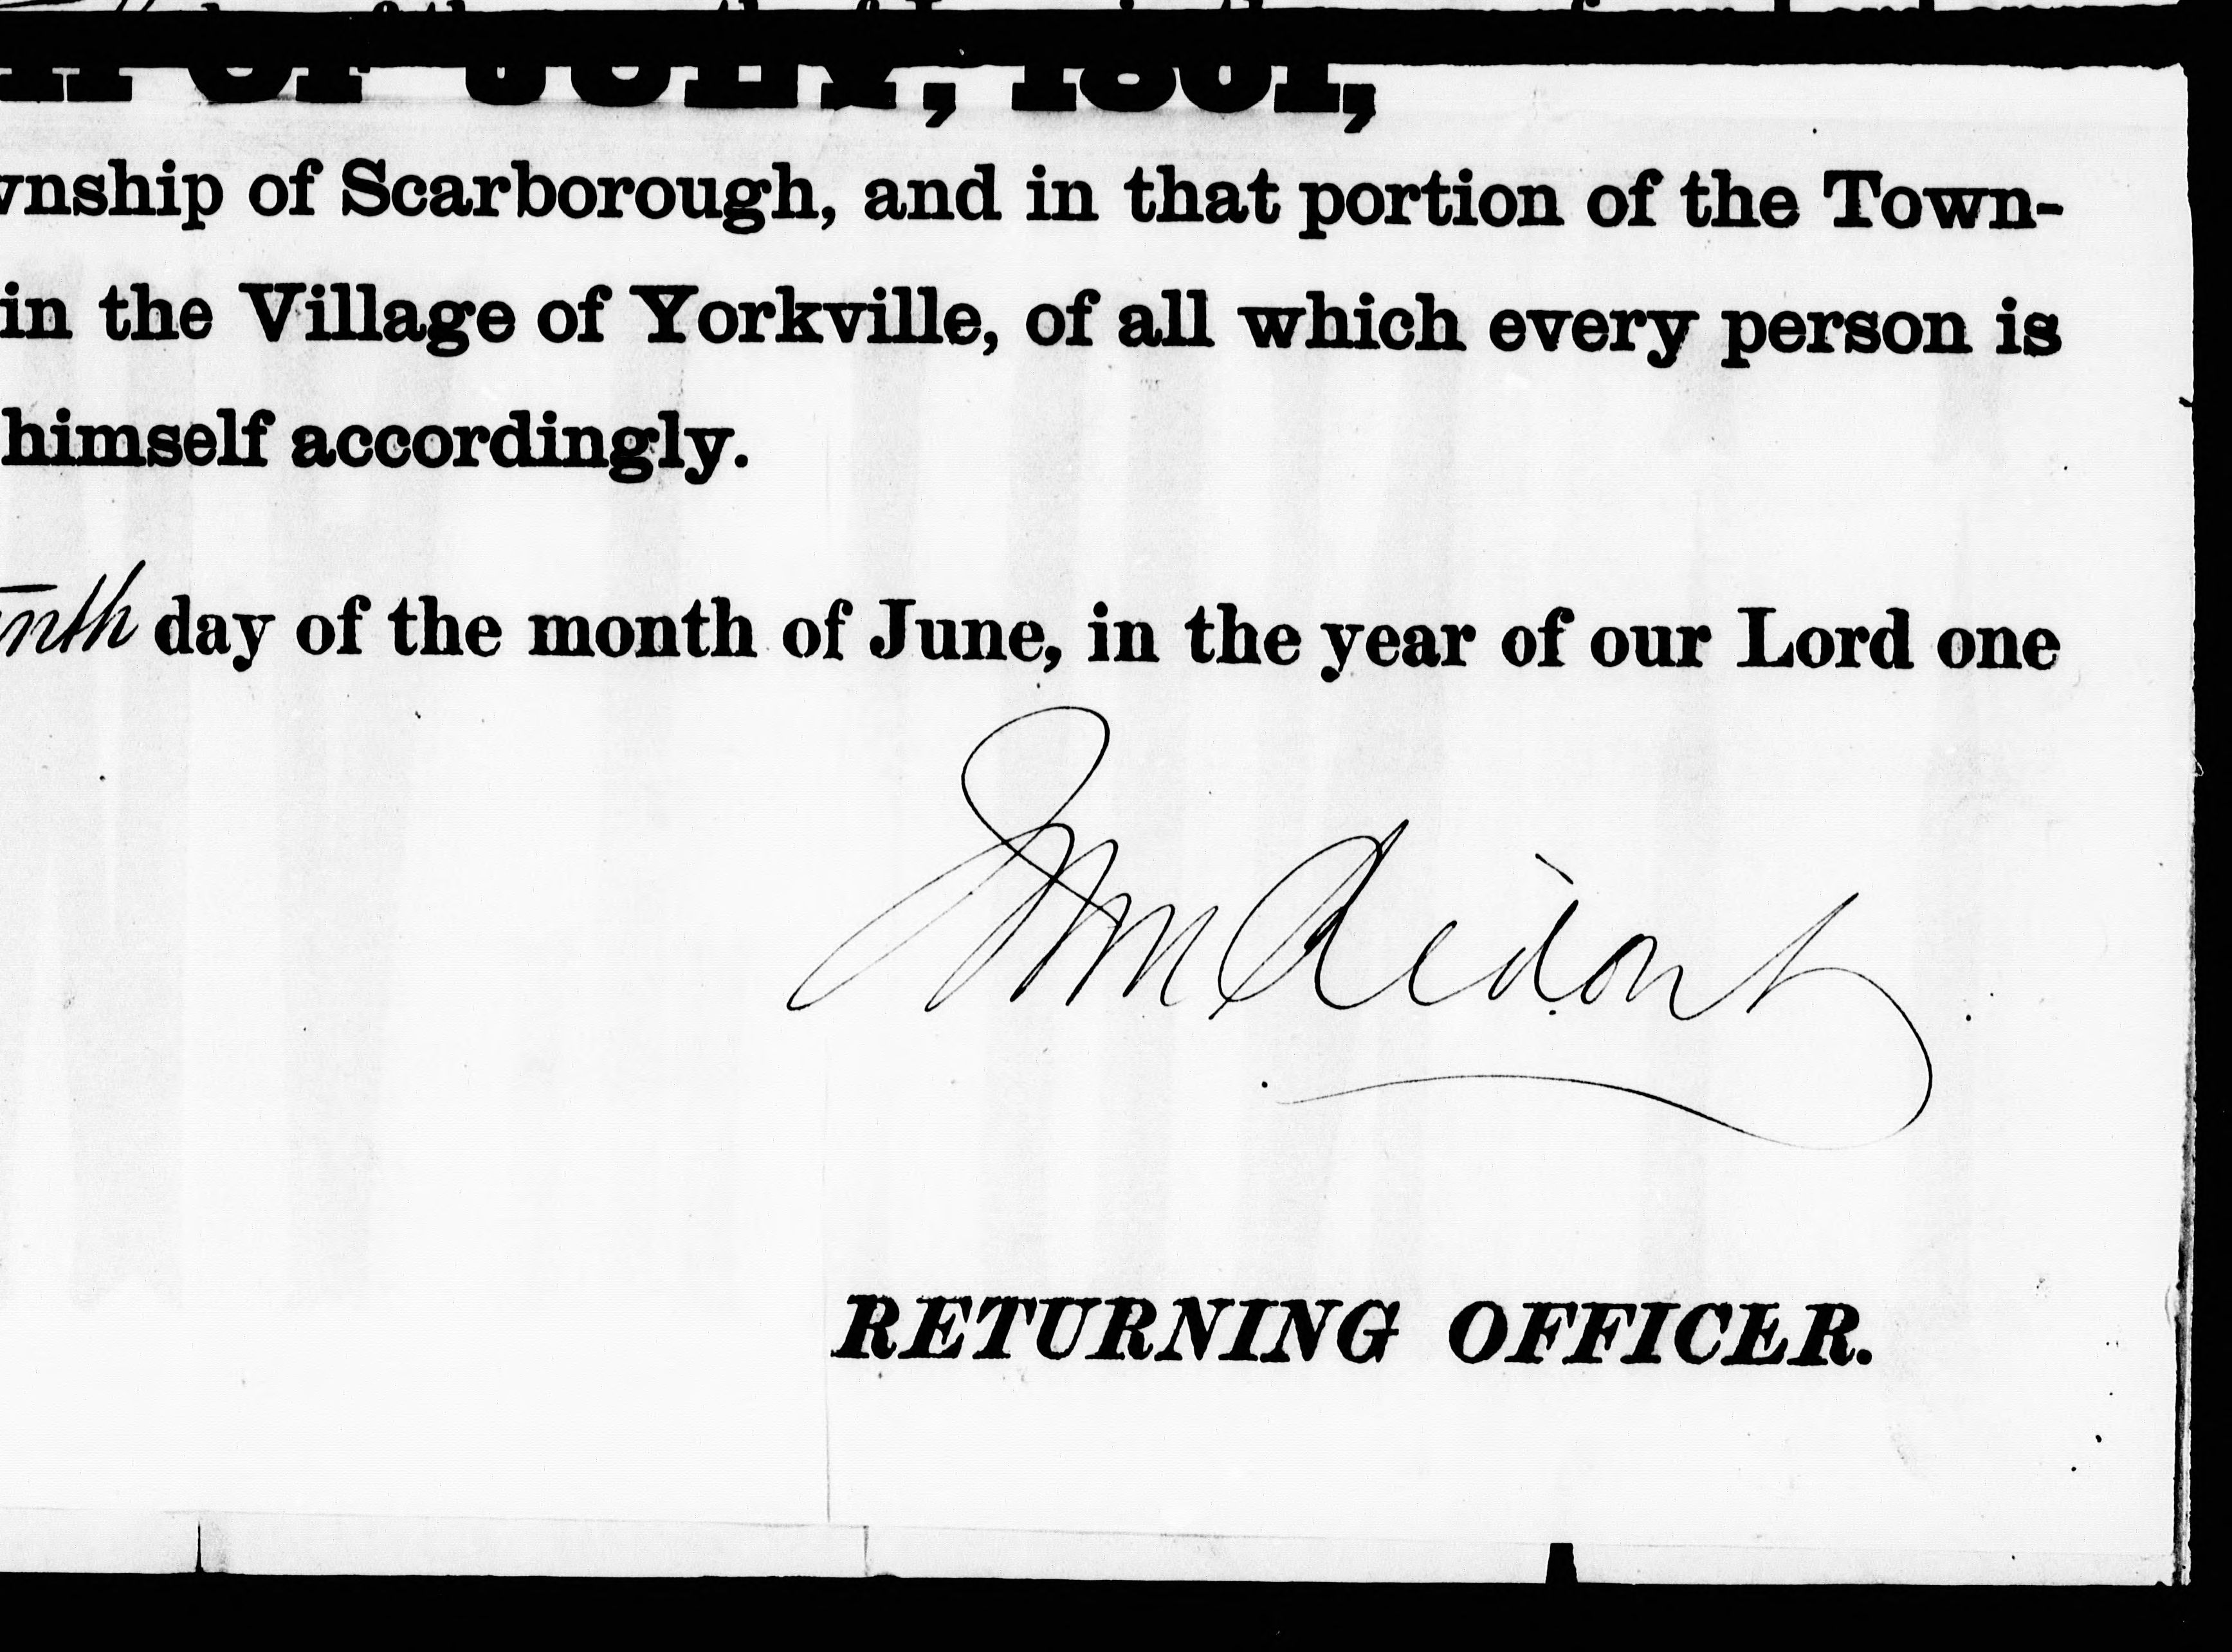 OF JULY, 1861,
wnship of Scarborough, and in that portion of the Town-
in the Village of Yorkville, of all which every person is
himself accordingly.
nth day of the month of June, in the year of our Lord one
RETURNING OFFICER.